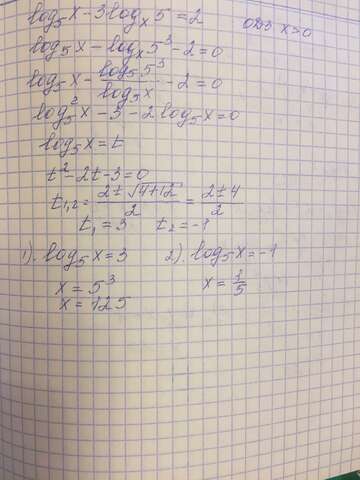 log₅x - 3log ₓ5 = 2 ОДЗ x>0
log₅x - logₓ5³ - 2 = 0
log₅x - log₅5³/log₅x - 2 = 0
log₅²x - 3 - 2log₅x = 0
log₅x = t
t² - 2t - 3 = 0
t₁,₂ = (2 ± √4+12)/2 = (2 ± 4)/2
t₁ = 3 t₂ = -1
1). log₅x = 3 2). log₅x = -1
x = 5³ x = 1/5
x = 125